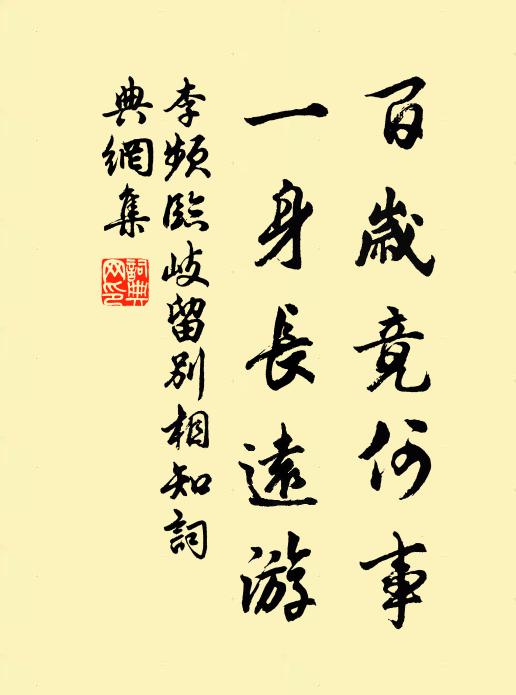 百歲竟何事
一身長遠游
李頻臨岐留別相知詞
典網集
詞典
网印